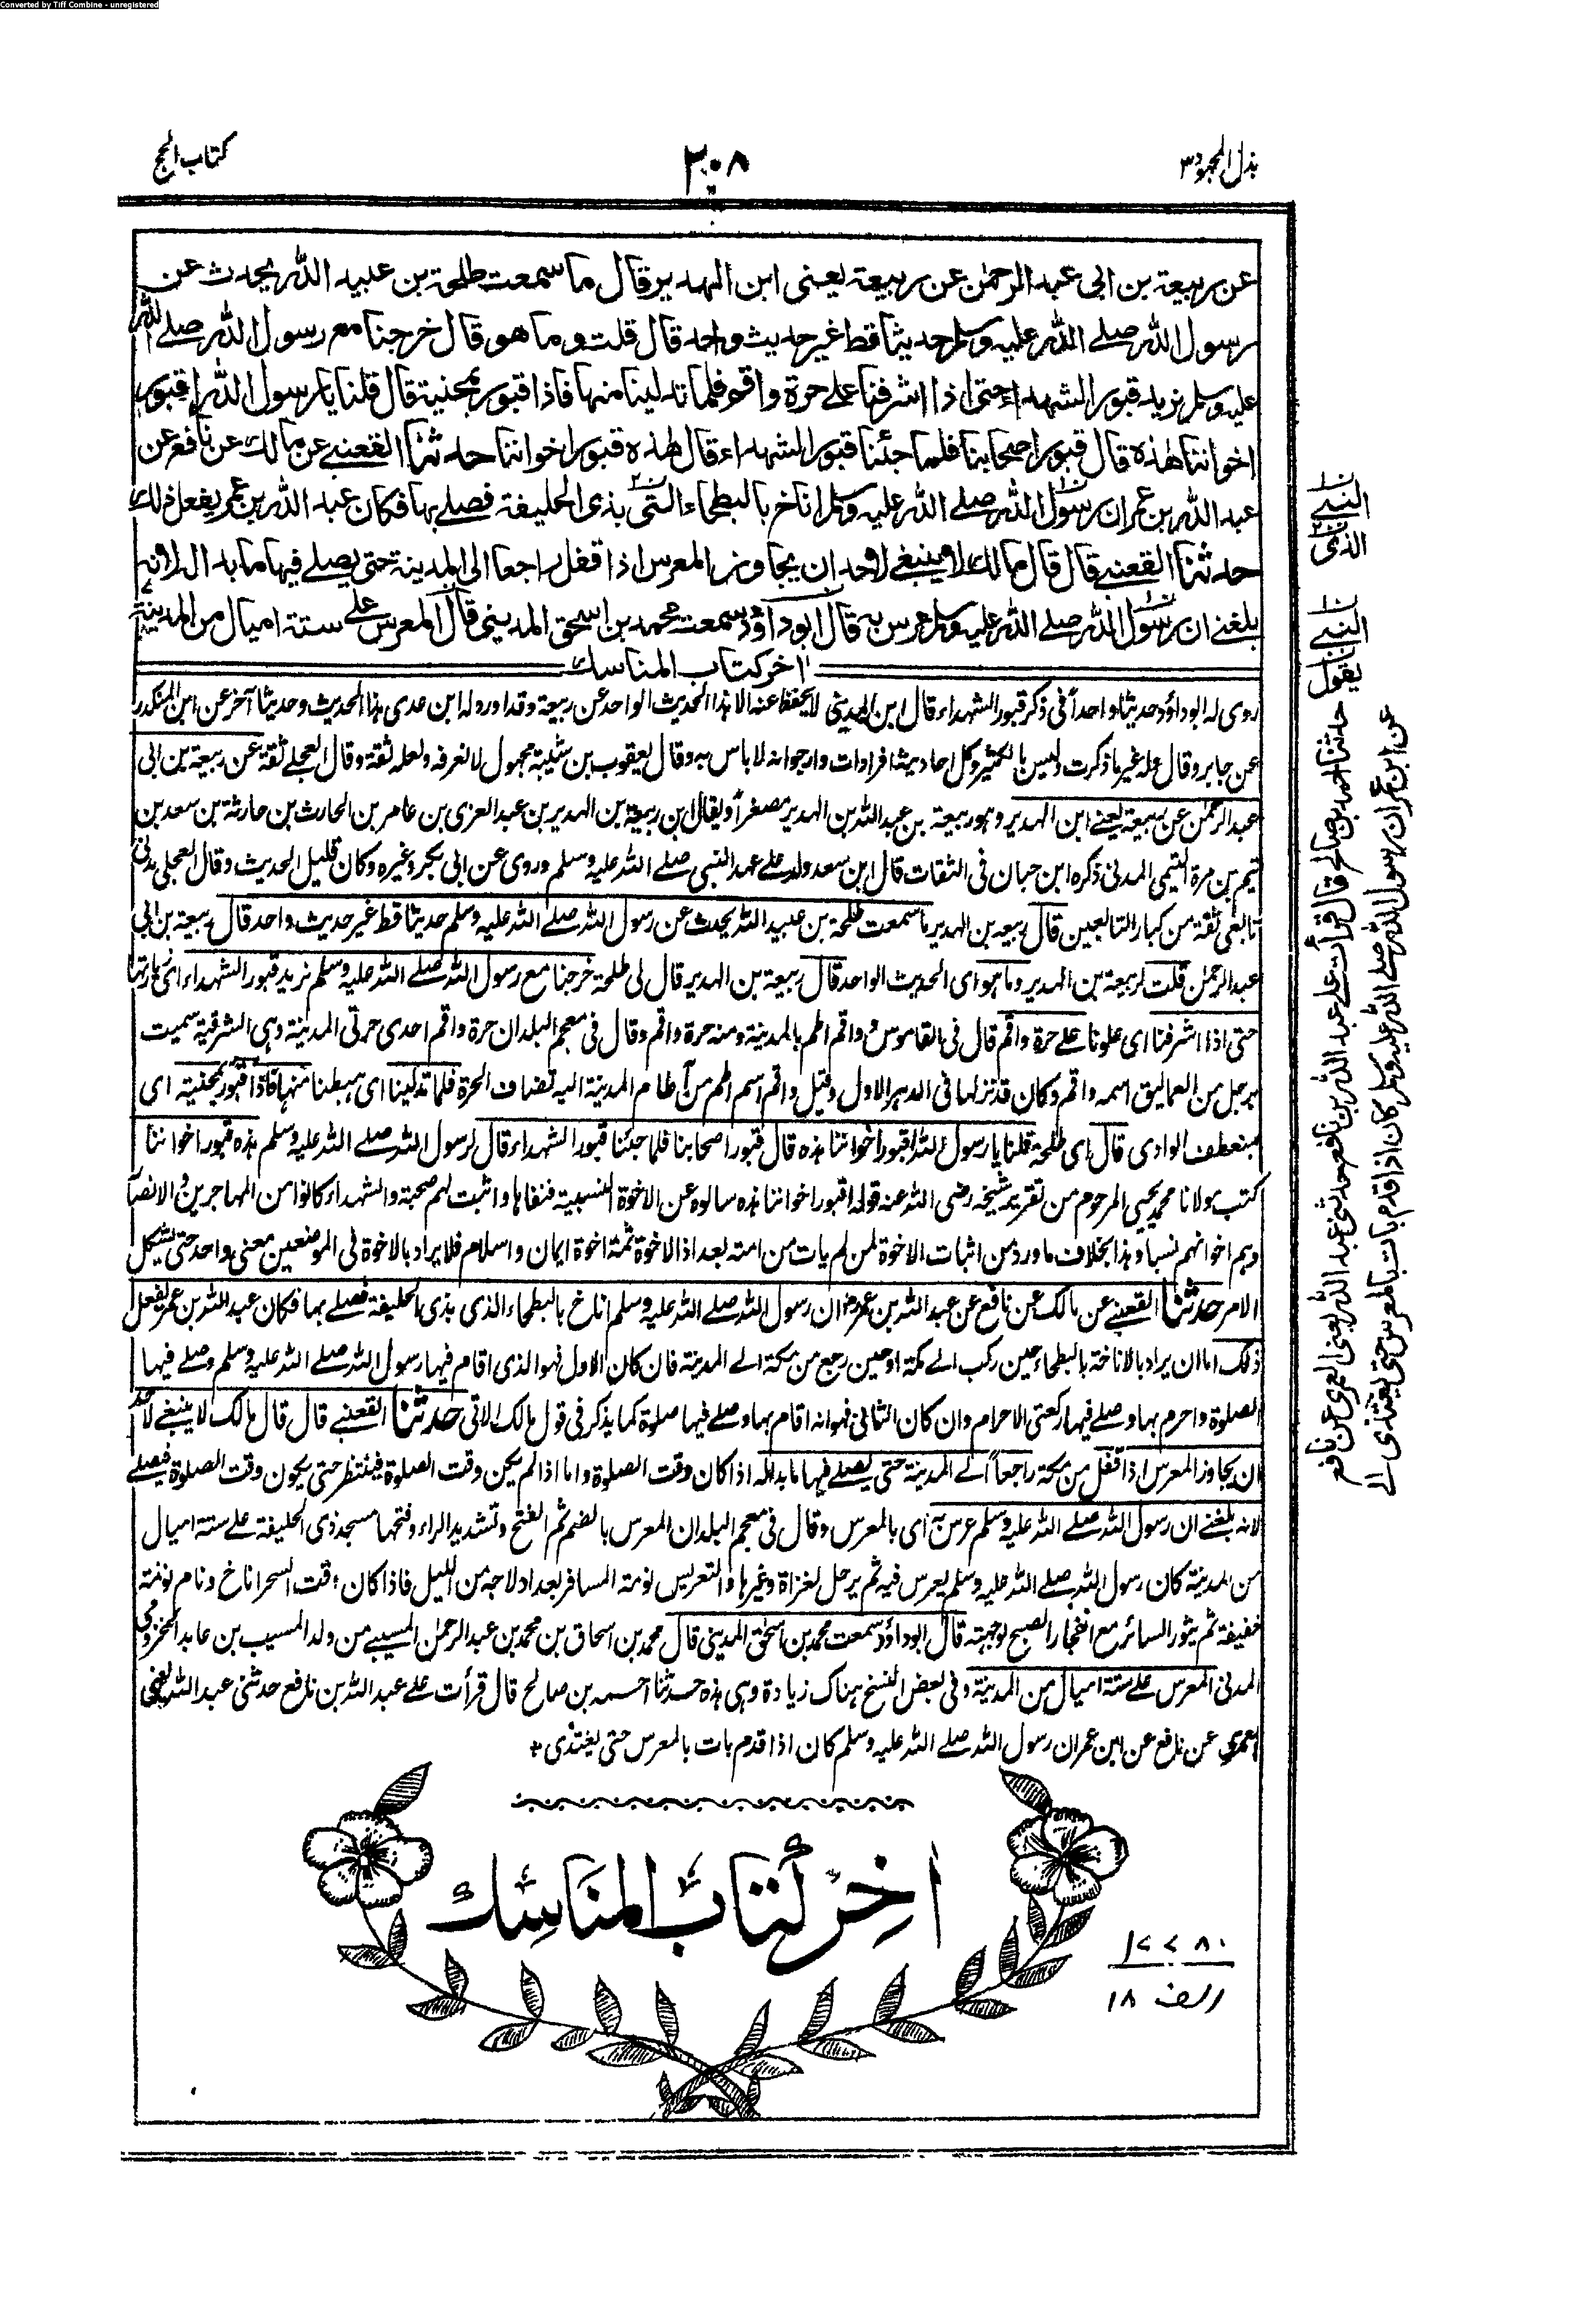 Converted by Tiff Combine - unregistered
بذل المجهود ٣
٢٠٨
كتاب الحج
عن ربيعة بن ابى عبد الرحمٰن عن ربيعة يعنى ابن الهدير قال ما سمعت طلحة بن عبيد الله يحدث عن
رسول الله صلے الله عليه وسلم حديثا قط غير حديث واحد قال قلت وما هو قال خرجنا مع رسول الله صلے الله
عليه وسلم نريد قبور الشهداء حتى اذا اشرفنا على حرة واقم فلما تدلينا منها فاذا قبور بمحنية قال قلنا يا رسول الله اقبور
اخواننا هذه قال قبور اصحابنا فلما جئنا قبور الشهداء قال هذه قبور اخواننا حدثنا القعنبے عن مالك عن نافع عن
عبد الله بن عمر ان رسول الله صلے الله عليه وسلم اناخ بالبطحاء التى بذى الحليفة فصلے بها فكان عبد الله بن عمر يفعل ذلك
حدثنا القعنبے قال قال مالك لا ينبغے لاحد ان يجاوز المعرس اذا قفل راجعا الى المدينة حتى يصلے فيها ما بدا له لانه
بلغنے ان رسول الله صلے الله عليه وسلم عرس به قال ابو داؤد سمعت محمد بن اسحق المدينى قال المعرس علے ستة اميال من المدينة
اٰخر كتاب المناسك
روى له ابو داؤد حديثا واحداً فى ذكر قبور الشهداء قال ابن المدينى لا يحفظ عنه الا هذا الحديث الواحد عن ربيعة وقد اورد له ابن عدى هذا الحديث وحديثا آخر عن ابن المنكدر
عن جابر وقال وله غير ما ذكرت وليس بالكثير وكل احاديثه افرادات وارجو انه لا باس به وقال يعقوب بن شيبة مجهول لا نعرفه ولعله ثقة وقال العجلے ثقة عن ربيعة بن ابى
عبد الرحمٰن عن ربيعة يعنے ابن الهدير وهو ربيعة بن عبد الله بن الهدير مصغراً ويقال ابن ربيعة بن الهدير بن عبد العزى بن عامر بن الحارث بن حارثة بن سعد بن
تيم بن مرة التيمى المدنى ذكره ابن حبان فى الثقات قال ابن سعد ولد علے عهد النبى صلے الله عليه وسلم وروى عن ابى بكر وغيره وكان قليل الحديث وقال العجلى مدنى
تابعى ثقة من كبار التابعين قال ربيعه بن الهدير ما سمعت طلحة بن عبيد الله يحدث عن رسول الله صلے الله عليه وسلم حديثا قط غير حديث واحد قال ربيعة بن ابى
عبد الرحمٰن قلت لربيعة بن الهدير وما هو اى الحديث الواحد قال ربيعة بن الهدير قال لى طلحة خرجنا مع رسول الله صلے الله عليه وسلم نريد قبور الشهداء اى زيارتها
حتى اذا اشرفنا اى علونا علے حرة واقم قال فى القاموس واقم اطم بالمدينة ومنه حرة واقم وقال فى معجم البلدان حرة واقم احدى حرتى المدينة وهى الشرقية سميت
برجل من العماليق اسمه واقم وكان قد نزلها فى الدهر الاول وقيل واقم اسم اطم من آطام المدينة اليه تضاف الحرة فلما تدلينا اى هبطنا منها فاذا قبور بمحنية اى
بمنعطف الوادى قال اى طلحة قلنا يا رسول الله اقبور اخواننا هذه قال قبور اصحابنا فلما جئنا قبور الشهداء قال لرسول الله صلے الله عليه وسلم هذه قبور اخواننا
كتب مولانا محمد يحيى المرحوم من تقرير شيخه رضى الله عنه قوله اقبور اخواننا هذه سالوه عن الاخوة النسبية فنفاها واثبت لهم صحبة والشهداء كانوا من المهاجرين والانصار
وهم اخوانهم نسبا وهذا بخلاف ما ورد من اثبات الاخوة لمن لم يات من امته بعد اذ الاخوة ثمة اخوة ايمان واسلام فلا يراد بالاخوة فى الموضعين معنى واحد حتى يشكل
الامر حدثنا القعنبے عن مالك عن نافع عن عبد الله بن عمر ان رسول الله صلے الله عليه وسلم اناخ بالبطحاء الذى بذى الحليفة فصلے بها فكان عبد الله بن عمر يفعل
ذلك اما ان يراد بالاناخة بالبطحاء حين ركب الے مكة او حين رجع من مكة الے المدينة فان كان الاول فهو الذى اقام فيها رسول الله صلے الله عليه وسلم وصلے فيها
الصلوة واحرم بها وصلے فيها ركعتى الاحرام وان كان الثانى فهو انه اقام بها وصلے فيها صلوة كما يذكر فى قول مالك الاتى حدثنا القعنبے قال قال مالك لا ينبغے لاحد
ان يجاوز المعرس اذا قفل من مكة راجعاً الے المدينة حتى يصلے فيها ما بدا له اذا كان وقت الصلوة واما اذا لم يكن وقت الصلوة فينتظر حتى يكون وقت الصلوة فيصلے
لانه بلغنے ان رسول الله صلے الله عليه وسلم عرس به اى بالمعرس وقال فى معجم البلدان المعرس بالضم ثم الفتح وتشديد الراء وفتحها مسجد ذى الحليفة علے ستة اميال
من المدينة كان رسول الله صلے الله عليه وسلم يعرس فيه ثم يرحل لغزاة وغيرها والتعريس نومة المسافر بعد ادلاجه من الليل فاذا كان وقت السحر اناخ ونام نومة
خفيفة ثم يثور السائر مع انفجار الصبح لوجهته قال ابو داؤد سمعت محمد بن اسحٰق المدينى قال محمد بن اسحاق بن محمد بن عبد الرحمٰن المسيبے من ولد المسيب بن عابد المخزومى
المدنى المعرس علے ستة اميال من المدينة وفى بعض النسخ هناك زيادة وهى هذه حدثنا احمد بن صالح قال قرأت علے عبد الله بن نافع حدثنى عبد الله يعنى
العمرى عن نافع عن ابن عمر ان رسول الله صلے الله عليه وسلم كان اذا قدم بات بالمعرس حتى يغتدى
اٰخِر كتاب المنَاسِك
الف ١٨
النبے
الذى
النبے
يقول
حدثنا احمد بن صالح قال قرأت علے عبد الله بن نافع حدثنى عبد الله يعنى العمرى عن نافع
عن ابن عمر ان رسول الله صلے الله عليه وسلم كان اذا قدم بات بالمعرس حتى يغتدى